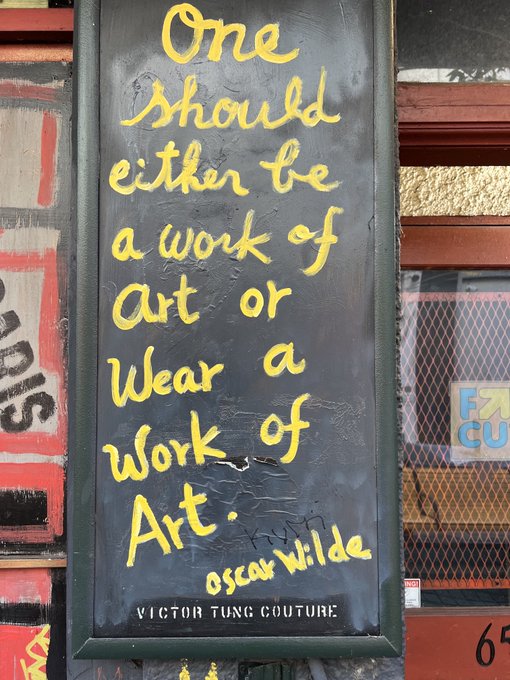 One
should
either be
a work of
art or
Wear a
Work of
Art.
oscar Wilde
VICTOR TUNG COUTURE
PARIS
65